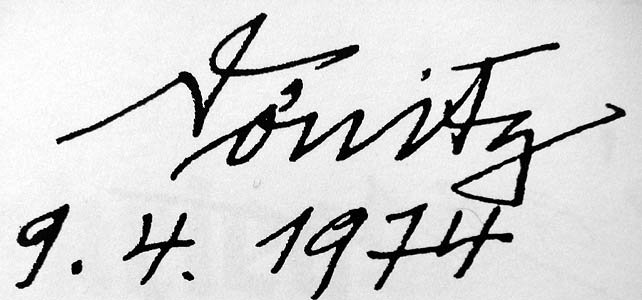 Dönitz
9. 4. 1974